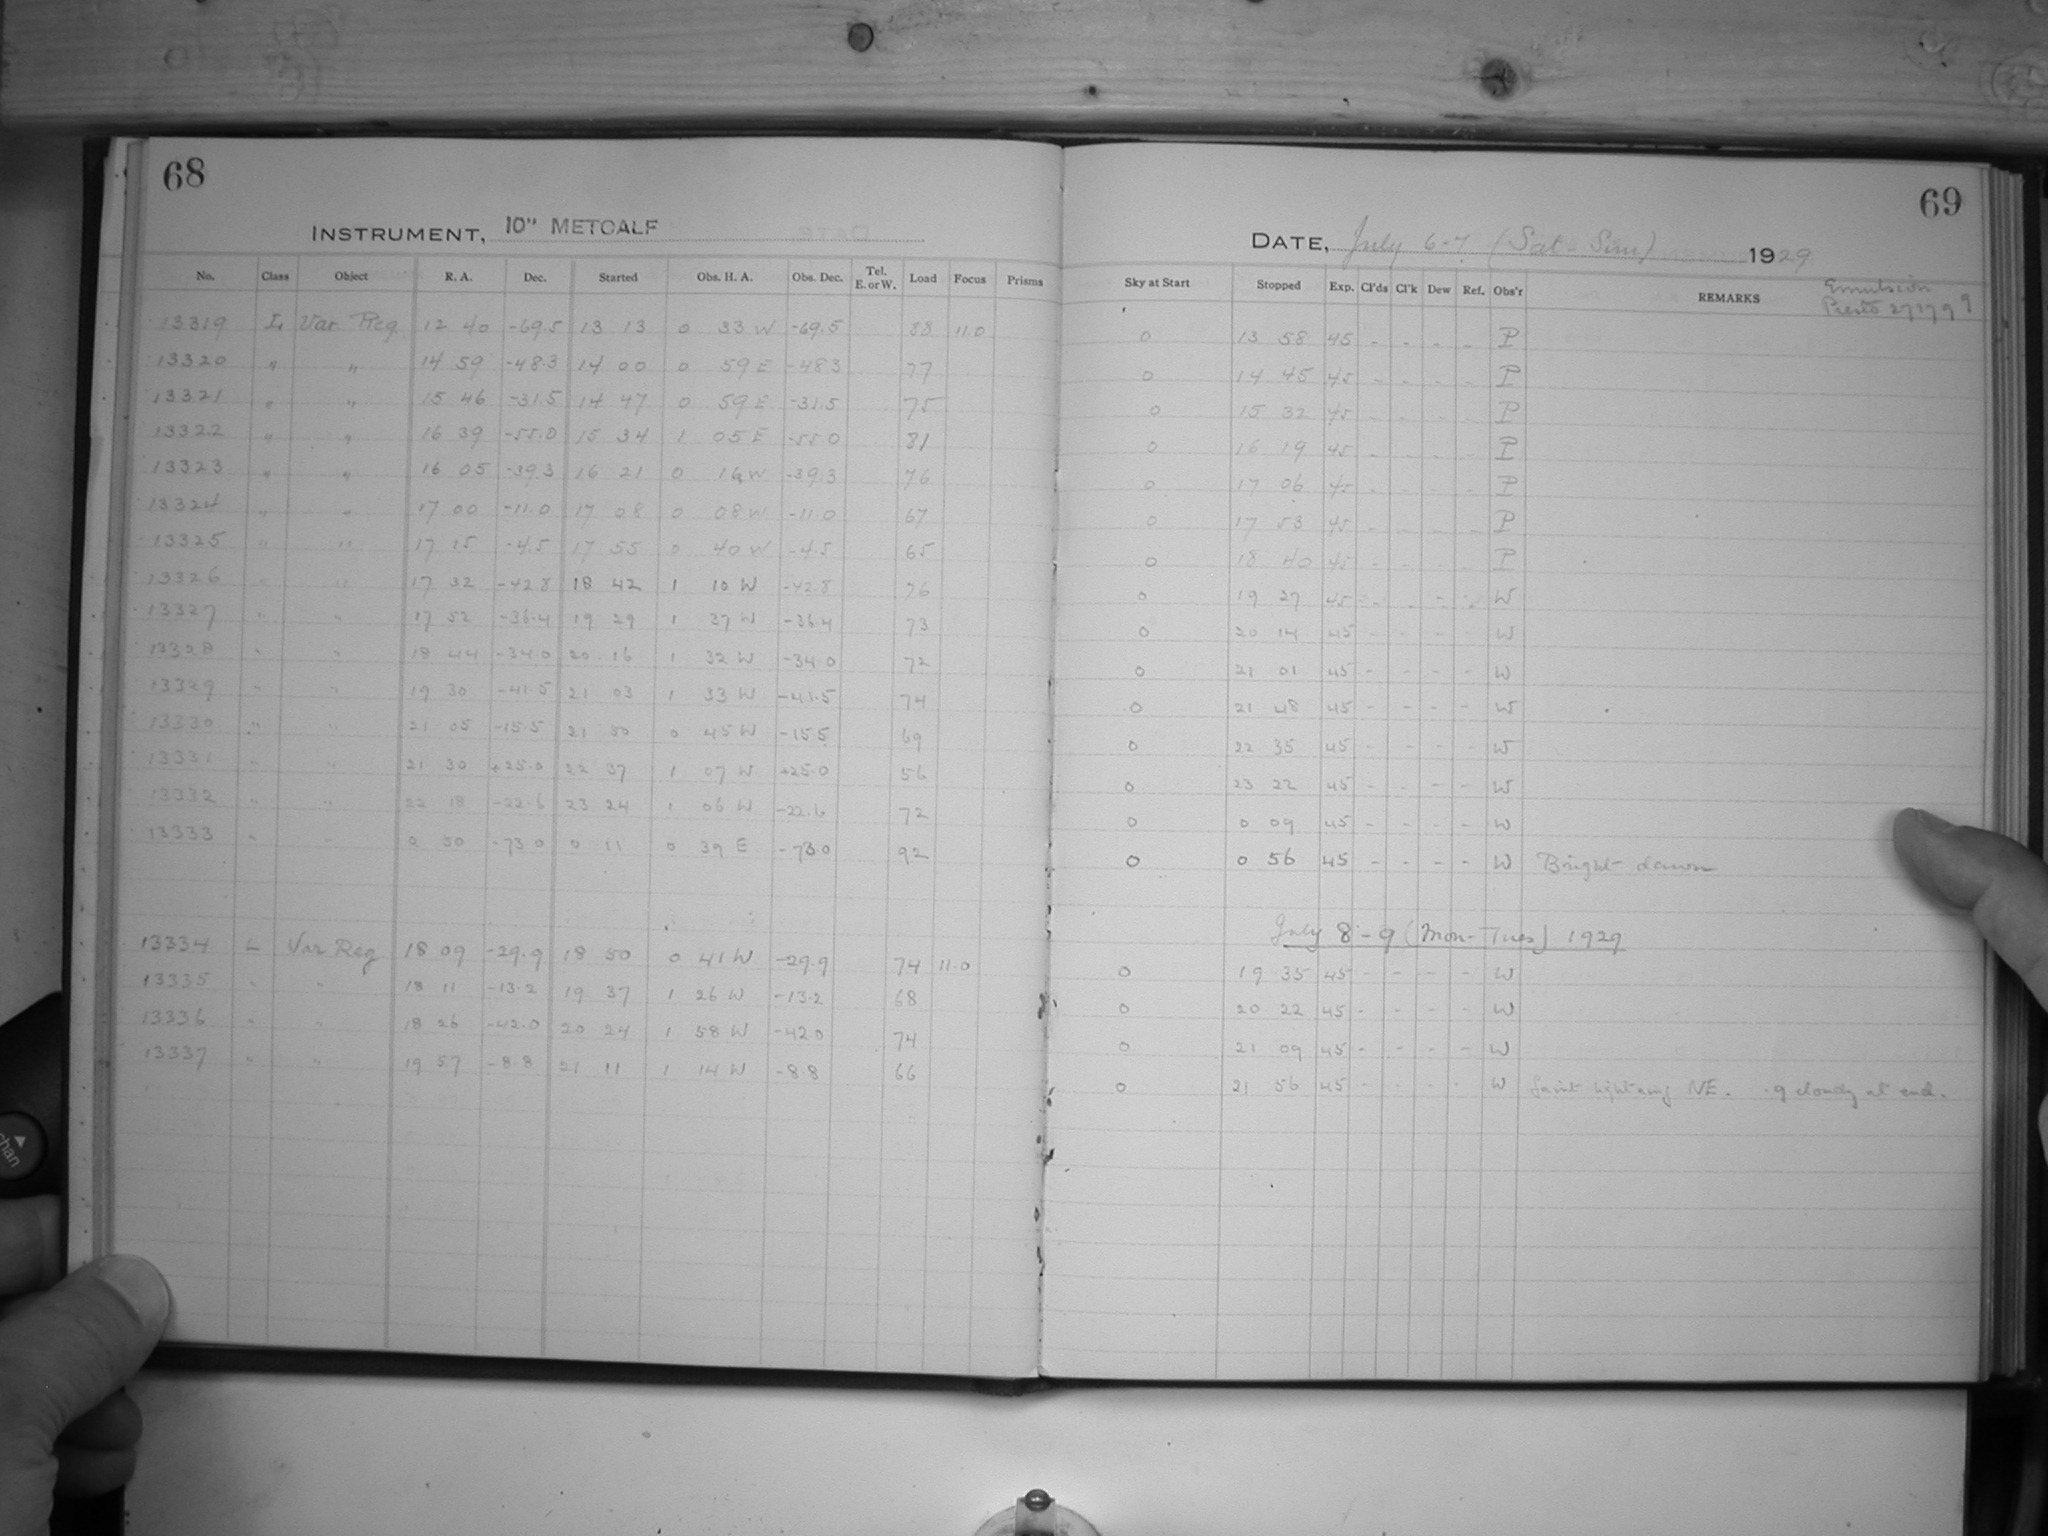 68
INSTRUMENT, 10" METCALF
No. Class Object R. A. Dec. Started Obs. H. A. Obs. Dec. Tel. E. or W. Load Focus Prisms
13319 L Var. Reg. 12 40 -69.5 13 13 0 33 W -69.5 88 11.0
13320 " " 14 59 -48.3 14 00 0 59 E -48.3 77
13321 " " 15 46 -31.5 14 47 0 59 E -31.5 75
13322 " " 16 39 -55.0 15 34 1 05 E -55.0 81
13323 " " 16 05 -39.3 16 21 0 16 W -39.3 76
13324 " " 17 00 -11.0 17 08 0 08 W -11.0 67
13325 " " 17 15 -4.5 17 55 0 40 W -4.5 65
13326 " " 17 32 -42.8 18 42 1 10 W -42.8 76
13327 " " 17 52 -36.4 19 29 1 37 W -36.4 73
13328 " " 18 44 -34.0 20 16 1 32 W -34.0 72
13329 " " 19 30 -41.5 21 03 1 33 W -41.5 74
13330 " " 21 05 -15.5 21 50 0 45 W -15.5 69
13331 " " 21 30 +25.0 22 37 1 07 W +25.0 56
13332 " " 22 18 -22.6 23 24 1 06 W -22.6 72
13333 " " 0 50 -73.0 0 11 0 39 E -73.0 92
13334 L Var Reg 18 09 -29.9 18 50 0 41 W -29.9 74 11.0
13335 " " 18 11 -13.2 19 37 1 26 W -13.2 68
13336 " " 18 26 -42.0 20 24 1 58 W -42.0 74
13337 " " 19 57 -8.8 21 11 1 14 W -8.8 66
69
DATE, July 6-7 (Sat-Sun) 1929
Sky at Start Stopped Exp. Cl'ds Cl'k Dew Ref. Obs'r REMARKS
Emulsion
Presto 27179
0 13 58 45 - - - - P
0 14 45 45 - - - - P
0 15 32 45 - - - - P
0 16 19 45 - - - - P
0 17 06 45 - - - - P
0 17 53 45 - - - - P
0 18 40 45 - - - - P
0 19 27 45 - - - - W
0 20 14 45 - - - - W
0 21 01 45 - - - - W
0 21 48 45 - - - - W
0 22 35 45 - - - - W
0 23 22 45 - - - - W
0 0 09 45 - - - - W
0 0 56 45 - - - - W Bright dawn
July 8-9 (Mon-Tues) 1929
0 19 35 45 - - - - W
0 20 22 45 - - - - W
0 21 09 45 - - - - W
0 21 56 45 - - - - W faint lightning NE. .9 cloudy at end.
chan